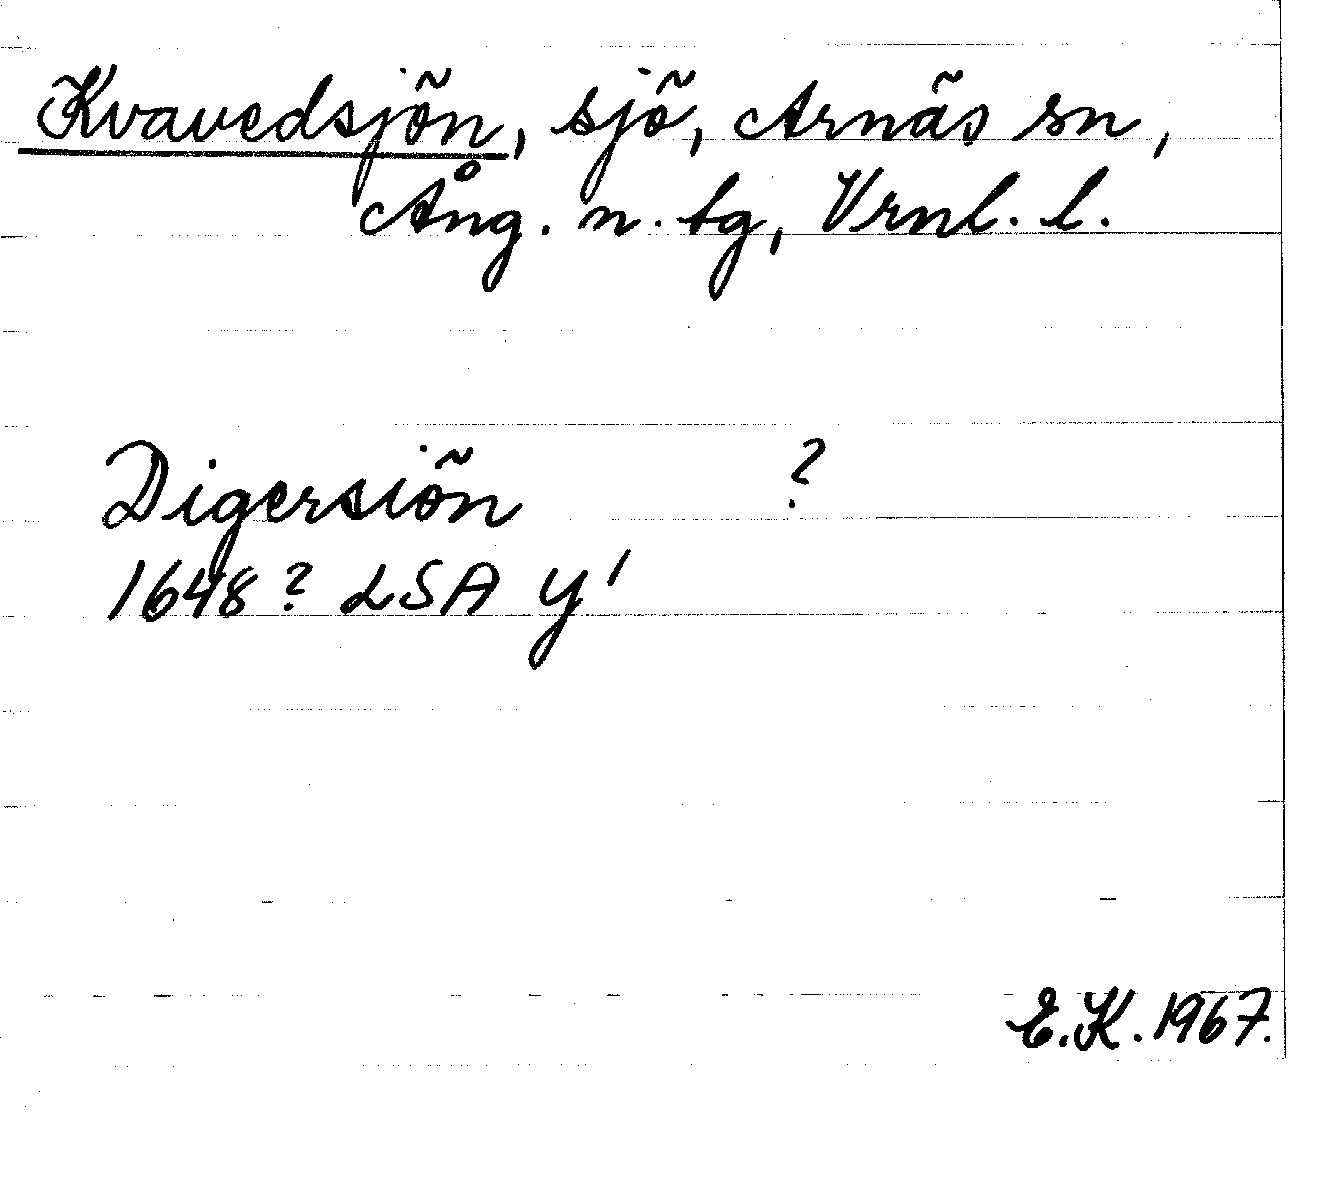 Kvavedsjön, sjö, Arnäs sn,
Ång. n. tg, Vrnl. l.
Digersiön ?
1648? LSA Y¹
E.K. 1967.